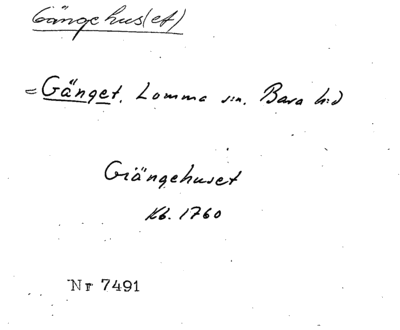 Gängehus(et)
= Gänget, Lomma sn, Bara hd
Giängehuset
Kb. 1760
Nr 7491